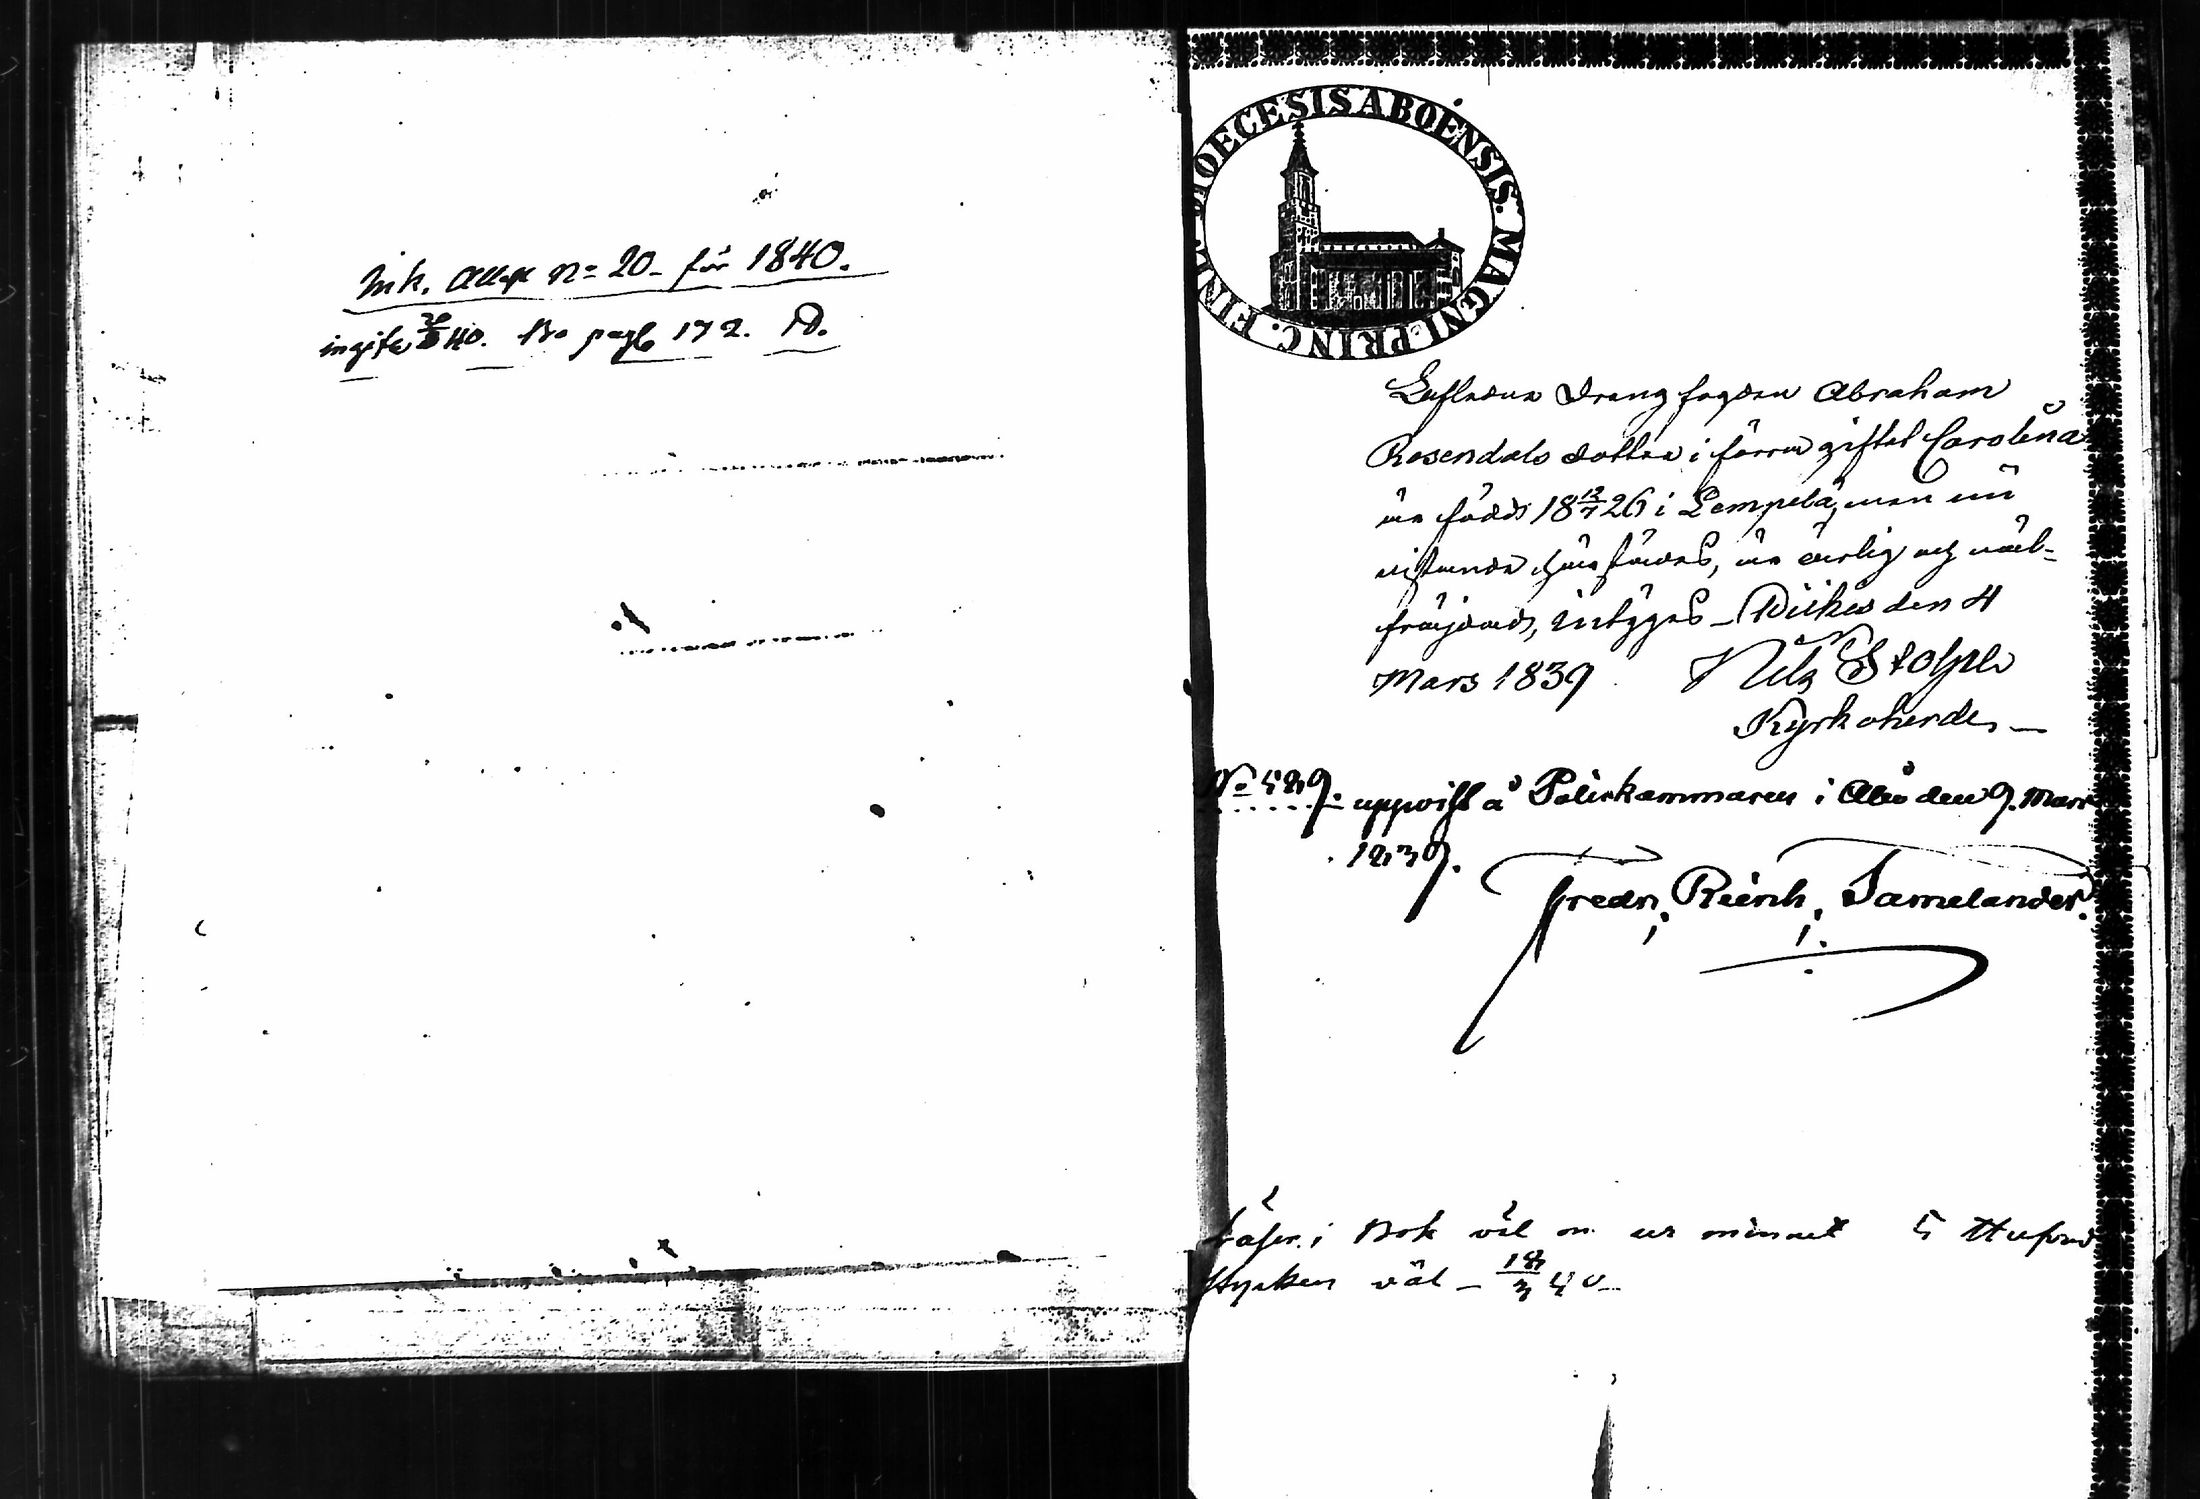 Ink. Attest No 20 för 1840.
ingifv. 40. Bo pag 172. D.
DIOECESIS ABOENSIS. MAGNI PRINC. FINL.
Afledne Drängfogden Abraham
Rosendals dotter i förra giftet Carolina
är född 18 12/7 26 i Lempelä, men nu
vistande härstädes, är ärlig och väl-
fräjdad, intygas den 4
Mars 1839 Nils Stolpe
Kyrkoherde
No 589. uppvist å Poliskammaren i Åbo den 9. Mars
1839.
Fredr. Reinh. Tamelander.
Läser i Bok väl ur minnet 5 Hufvud
stycken väl - 18/3 40